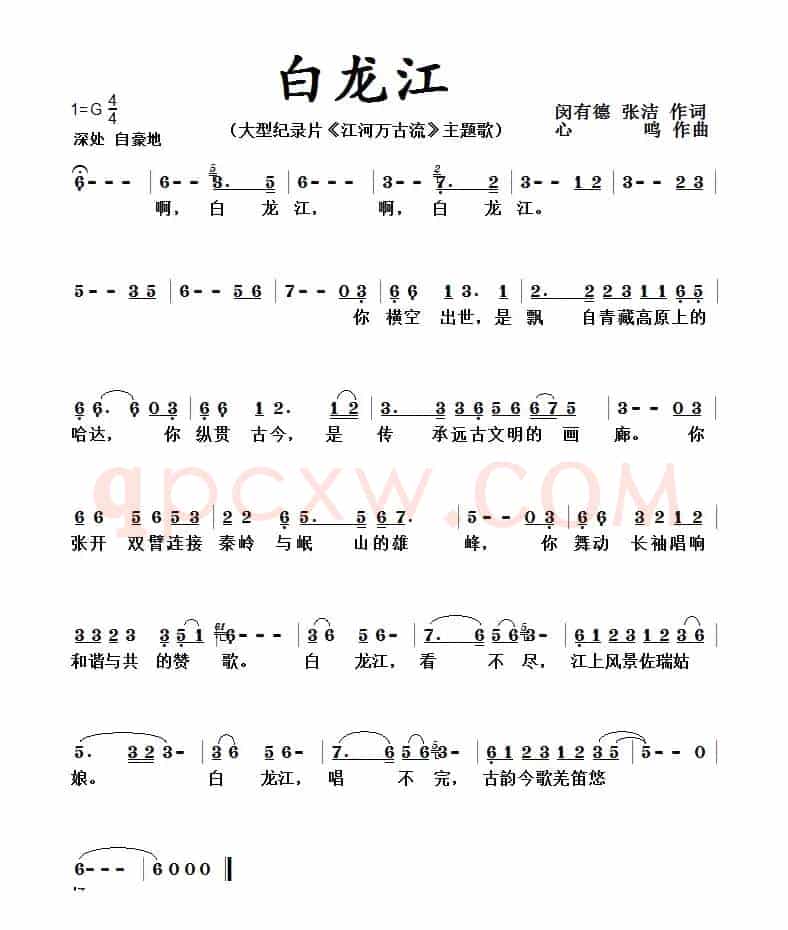 白龙江
1=G 4/4
深处 自豪地
（大型纪录片《江河万古流》主题歌）
闵有德 张洁 作词
心 鸣 作曲
6 - - - | 6 - - 5 3. 5 | 6 - - - | 3 - - 2 7. 2 | 3 - - 1 2 | 3 - - 2 3 |
啊，白 龙 江， 啊，白 龙 江。
5 - - 3 5 | 6 - - 5 6 | 7 - - 0 3 | 6 6 6 1 3. 1 | 2. 2 2 3 1 1 6 5 |
你 横空 出世，是 飘 自青藏高原上的
6 6. 6 0 3 | 6 6 1 2. 1 2 | 3. 3 3 6 5 6 6 7 5 | 3 - - 0 3 |
哈达， 你 纵贯 古今，是 传 承远古文明的 画 廊。 你
qpcxw.COM
6 6 5 6 5 3 | 2 2 6 5. 5 6 7. | 5 - - 0 3 | 6 6 3 2 1 2 |
张开 双臂,连接 秦岭 与岷 山的雄 峰， 你 舞动 长袖唱响
3 3 2 3 3 5 1 | 61 6 - - - | 3 6 5 6 - | 7. 6 5 6 5 3 - | 6 1 2 3 1 2 3 6 |
和谐与共 的赞 歌。 白 龙江，看 不 尽，江上风景佐瑞姑
5. 3 2 3 - | 3 6 5 6 - | 7. 6 5 6 5 3 - | 6 1 2 3 1 2 3 5 | 5 - - 0 |
娘。 白 龙江， 唱 不 完， 古韵今歌羌笛悠
6 - - - | 6 0 0 0 ‖